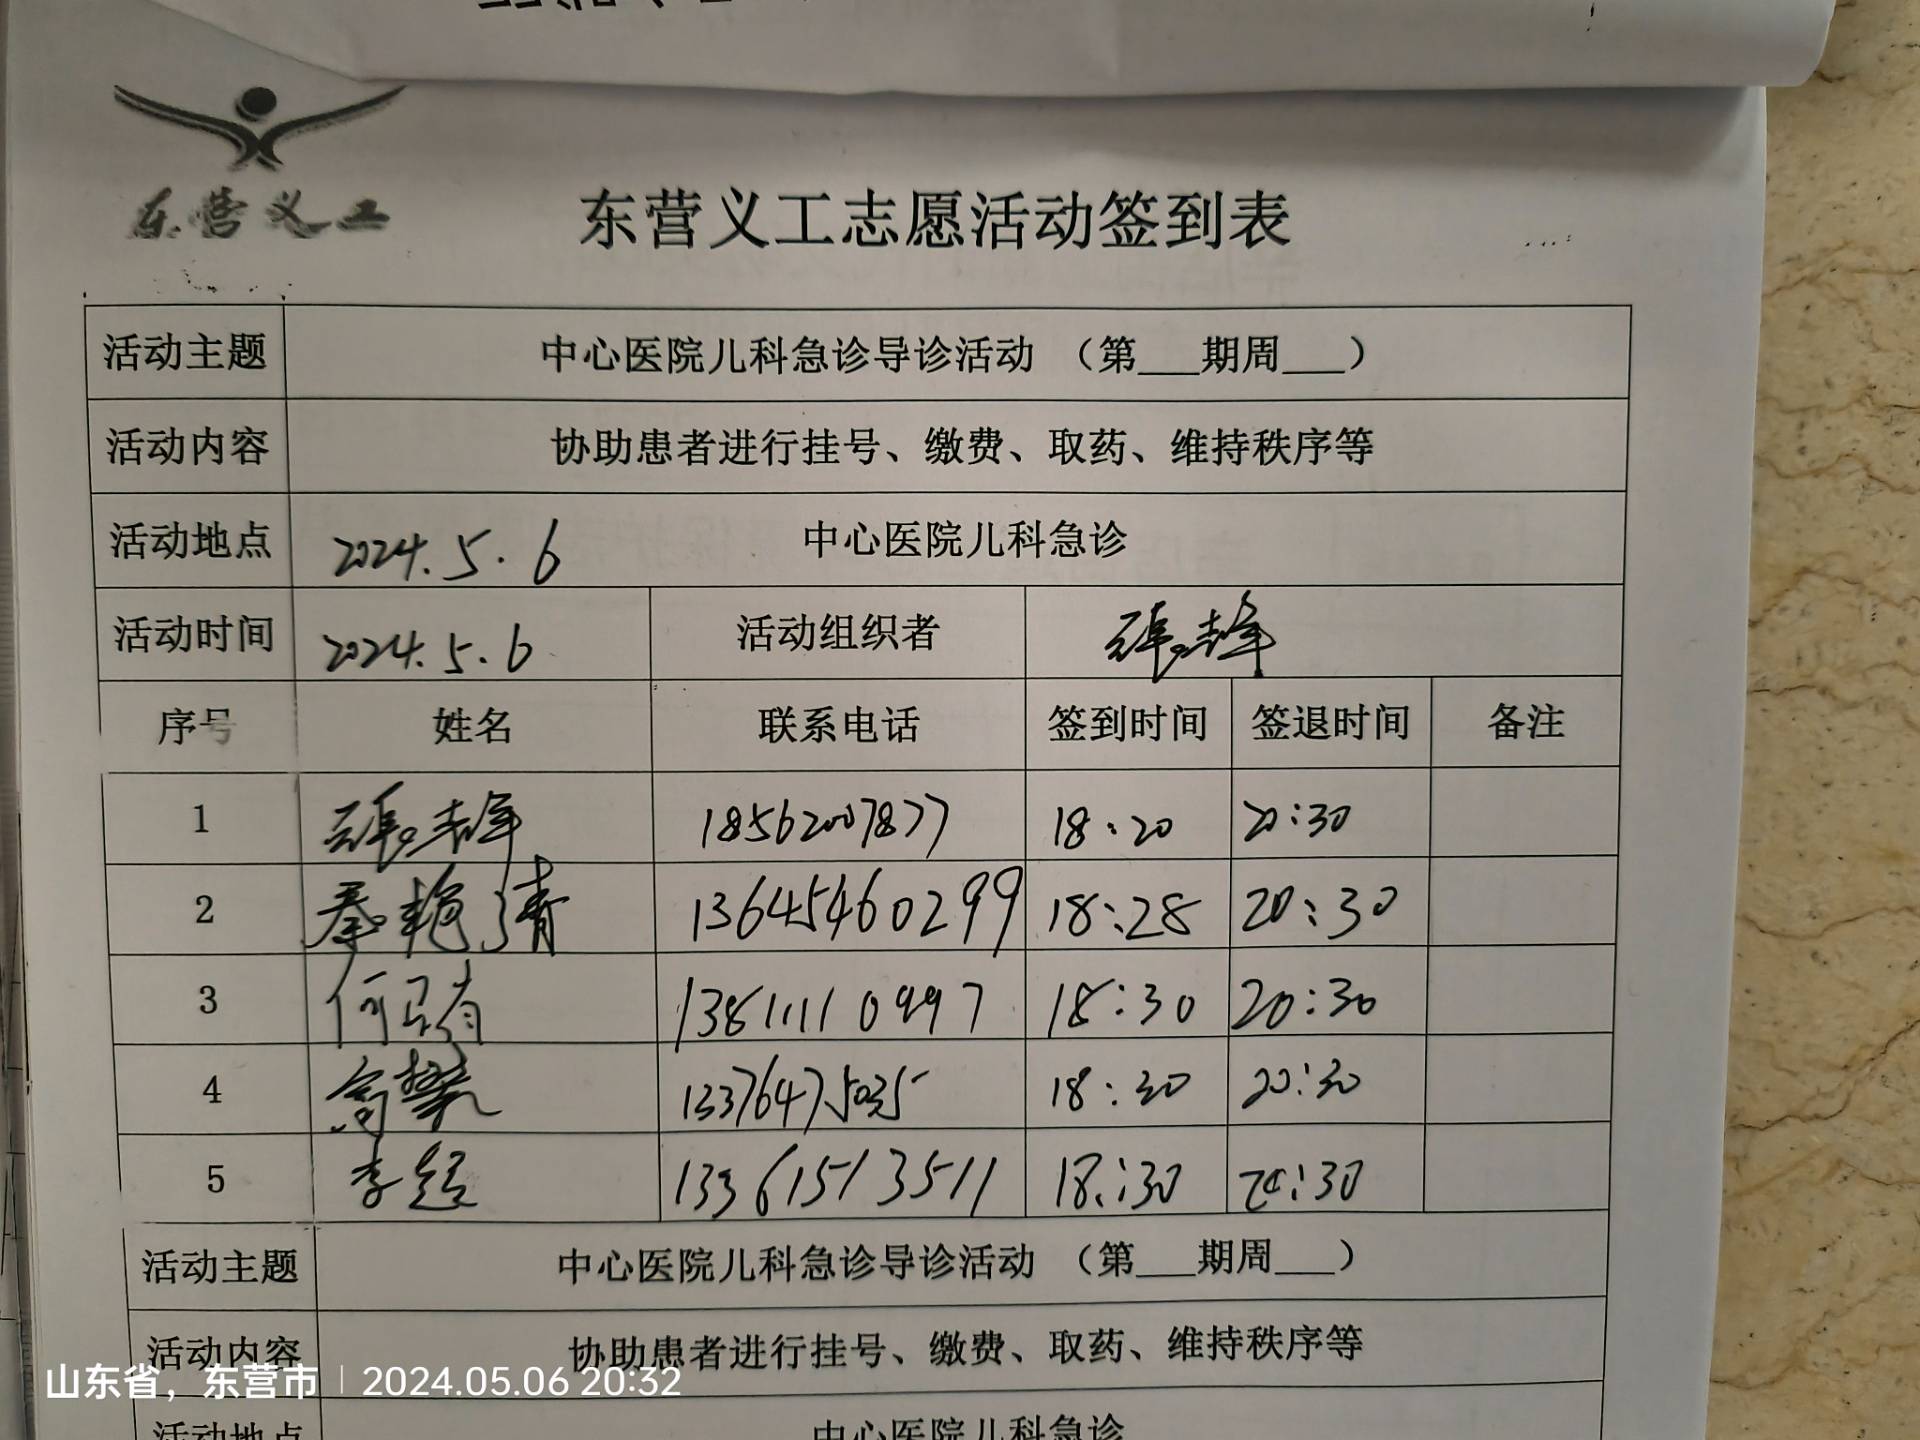 东营义工
东营义工志愿活动签到表
活动主题 中心医院儿科急诊导诊活动 （第___期周___）
活动内容 协助患者进行挂号、缴费、取药、维持秩序等
活动地点 2024.5.6 中心医院儿科急诊
活动时间 2024.5.6 活动组织者
序号 姓名 联系电话 签到时间 签退时间 备注
1 18562007877 18:20 20:30
2 秦艳清 13645460299 18:28 20:30
3 18:30 20:30
4 高攀 13376475035 18:30 20:30
5 李超 13361513511 18:30 20:30
活动主题 中心医院儿科急诊导诊活动 （第___期周___）
活动内容 协助患者进行挂号、缴费、取药、维持秩序等
山东省，东营市 2024.05.06 20:32
活动地点 中心医院儿科急诊